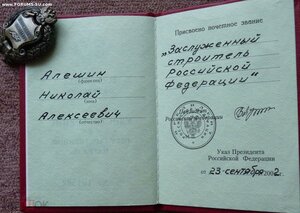 www.FORUMS-su.com
Алешин
(фамилия)
Николай
(имя)
Алексеевич
(отчество)
Присвоено почетное звание
"Заслуженный
строитель
Российской
Федерации"
Президент
Российской Федерации
Указ Президента
Российской Федерации
от 23 сентября 2002 г.